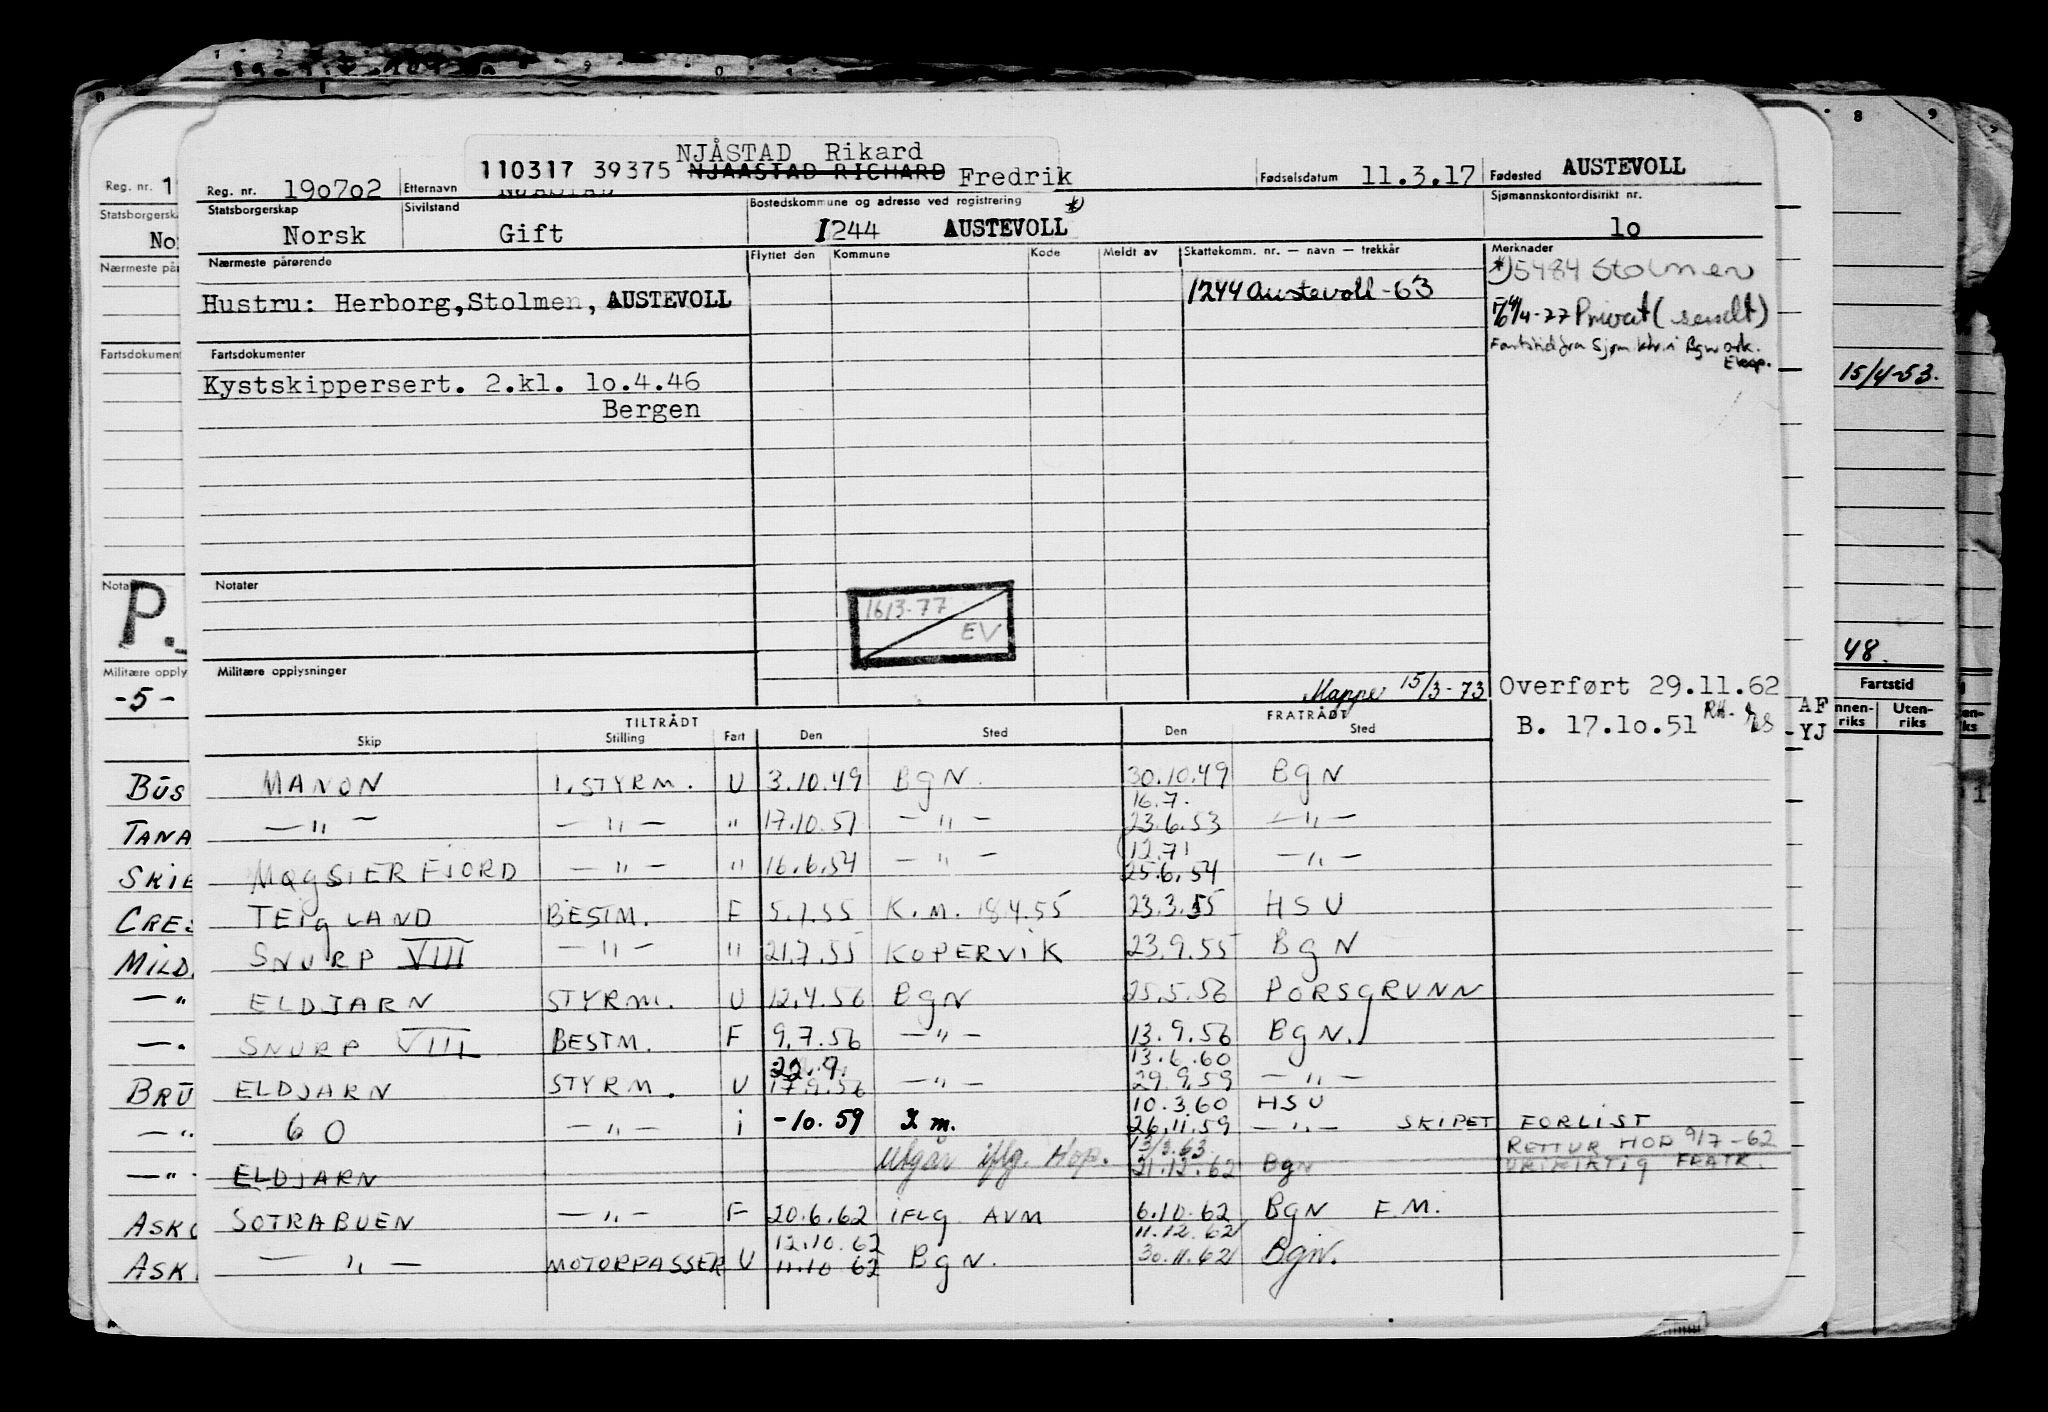 NJÅSTAD Rikard
110317 39375 NJAASTAD RICHARD Fredrik
Reg. nr. 190702 Etternavn NJÅSTAD Fødselsdatum 11.3.17 Fødested AUSTEVOLL
Statsborgerskap Norsk Sivilstand Gift Bostedskommune og adresse ved registrering *) 1244 AUSTEVOLL Sjømannskontordistrikt nr. lo
Nærmeste pårørende Flyttet den Kommune Kode Meldt av Skattekomm. nr. — navn — trekkår Merknader
*) 5484 Stolmen
Hustru: Herborg, Stolmen, AUSTEVOLL 1244 Austevoll-63
4-77 Privat (sendt)
Fartstid fra Sjøm.ktr. i Bgn ark.
Fartsdokumenter
Kystskippersert. 2.kl. lo.4.46
Bergen
Notater
16/3-77
EV
Militære opplysninger
Mappe 15/3-73
Overført 29.11.62
B. 17.lo.51
TILTRÅDT FRATRÅDT
Skip Stilling Fart Den Sted Den Sted
MANON 1. STYRM. U 3.10.49 BgN. 30.10.49 BgN
16.7.
— " — — " — " 17.10.51 — " — 23.6.53 — " —
12.71
MØGSTERFJORD — " — " 16.6.54 — " — 25.6.54 — " —
TEIgLAND BESTM. F 5.1.55 K.M. 18.4.55 23.3.55 HSU
SNURP VIII — " — " 21.7.55 KOPERVIK 23.9.55 BgN
ELDJARN STYRM. U 12.4.56 BgN 25.5.56 PORSGRUNN
SNURP VIII BESTM. F 9.7.56 — " — 13.9.56 BgN.
22.9. 13.6.60
ELDJARN STYRM. U 17.9.56 — " — 29.9.59 — " —
10.3.60 HSU
GO — " — i -10.59 I m. 26.11.59 — " — SKIPET FORLIST
13/3.63 RETTUR HOP 9/7-62
ELDJARN Utgår iflg. Hop. 21.12.62 Bgn URIKTIG FRATR.
SOTRABUEN — " — F 20.6.62 IFLG AVM 6.10.62 BgN F.M.
12.10.62 11.12.62
— " — MOTORPASSER U 11.10 62 BgN. 30.11.62 BgN.
Reg. nr. 1
No
Fartsdokument
P.
-5-
BUS
TANA
SKIE
CRES
MILD
— "
BRU
— "
— "
ASKO
ASK
8 9
15/4-53.
48.
Fartstid
Uten-
riks
AF
YJ